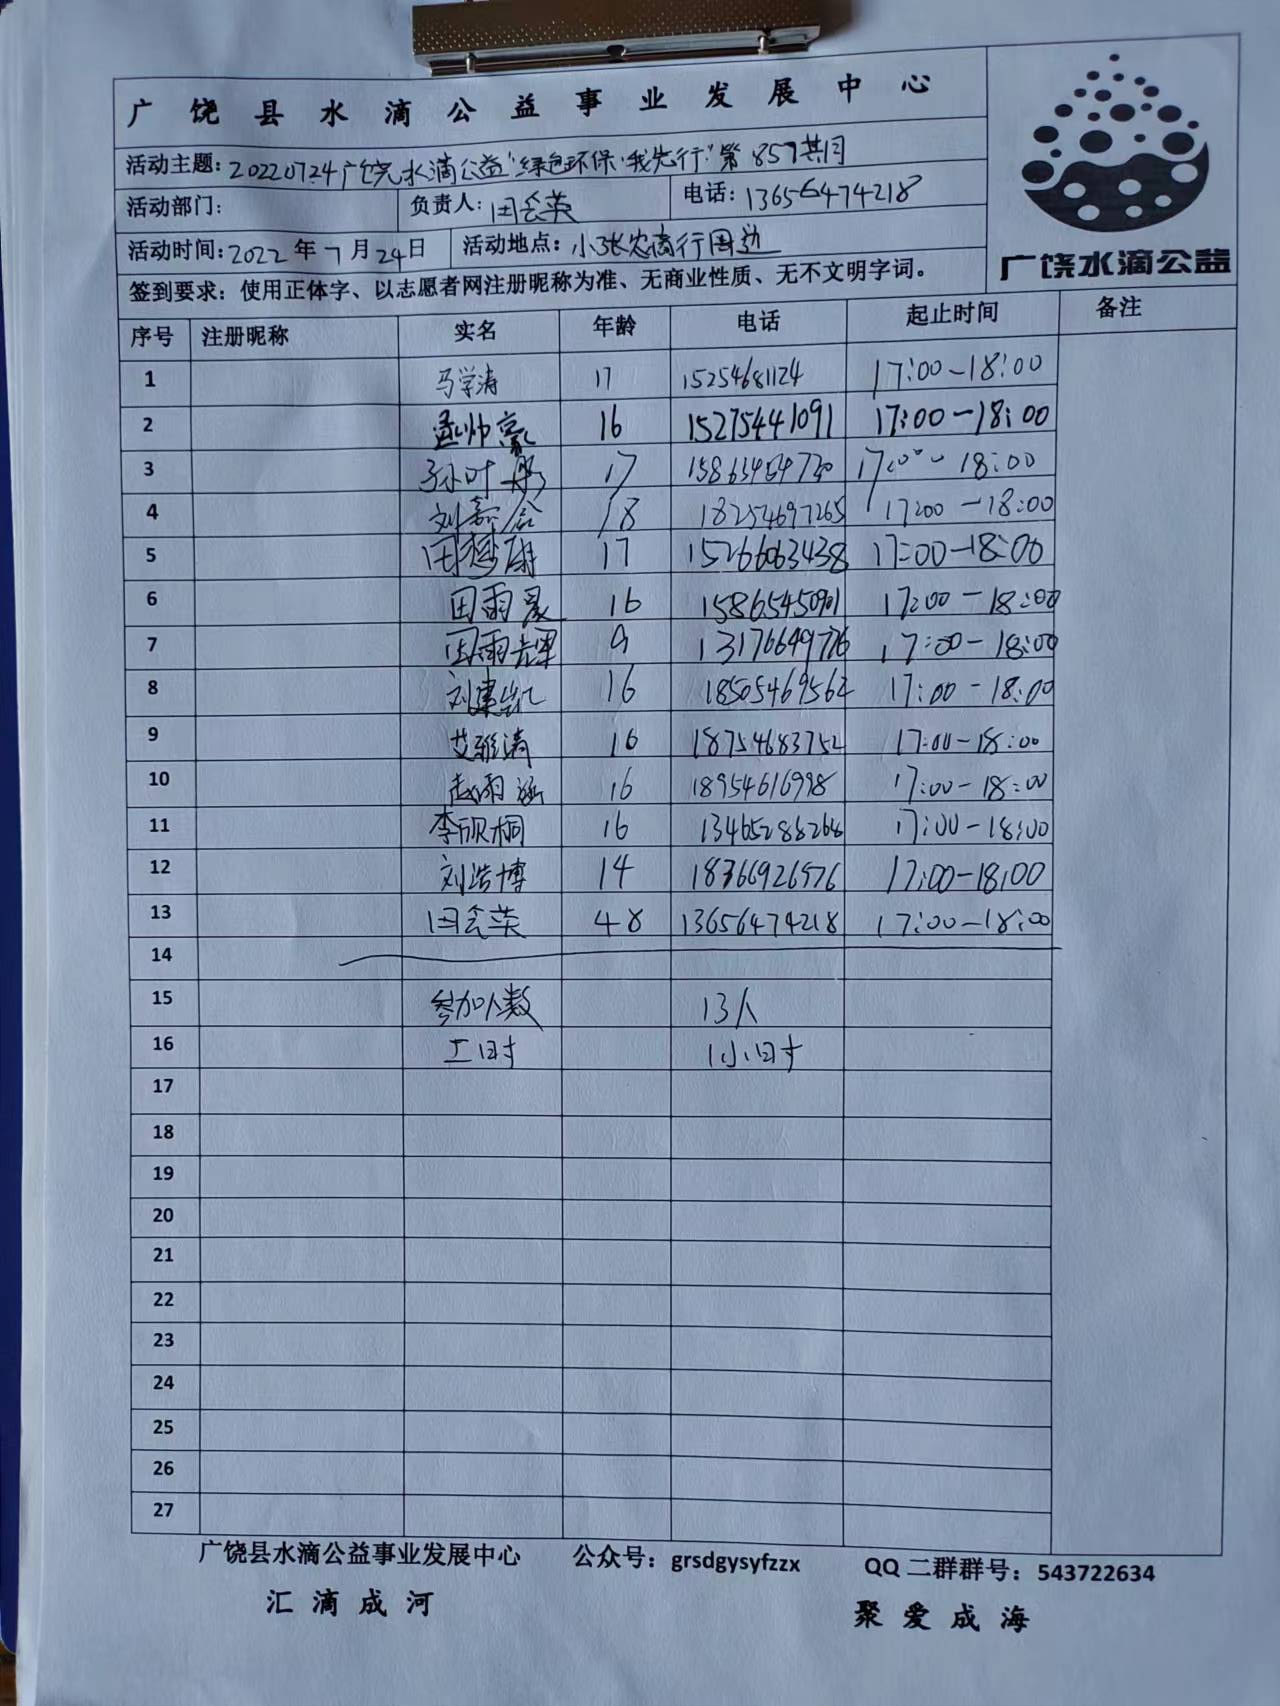 广饶县水滴公益事业发展中心
活动主题: 20220724广饶水滴公益"绿色环保·我先行"第857共同
活动部门: 负责人: 田会英 电话: 13656474218
活动时间: 2022年7月24日 活动地点: 小张农商行周边
广饶水滴公益
签到要求: 使用正体字、以志愿者网注册昵称为准、无商业性质、无不文明字词。
序号 注册昵称 实名 年龄 电话 起止时间 备注
1 马学涛 17 15254681124 17:00-18:00
2 孟帅豪 16 15275441091 17:00-18:00
3 孙叶 17 17:00-18:00
4 刘 18 18254697265 17:00-18:00
5 田梦康 17 15266063438 17:00-18:00
6 田雨晨 16 15865450901 17:00-18:00
7 田雨 9 13176649776 17:00-18:00
8 刘建凯 16 18505469562 17:00-18:00
9 艾雅涛 16 18754683752 17:00-18:00
10 赵雨涵 16 18954616998 17:00-18:00
11 李欣桐 16 13465286268 17:00-18:00
12 刘浩博 14 18766926576 17:00-18:00
13 田会英 48 13656474218 17:00-18:00
14
15 参加人数 13人
16 工时 1小时
17
18
19
20
21
22
23
24
25
26
27
广饶县水滴公益事业发展中心 公众号: grsdgysyfzzx QQ二群群号: 543722634
汇滴成河 聚爱成海